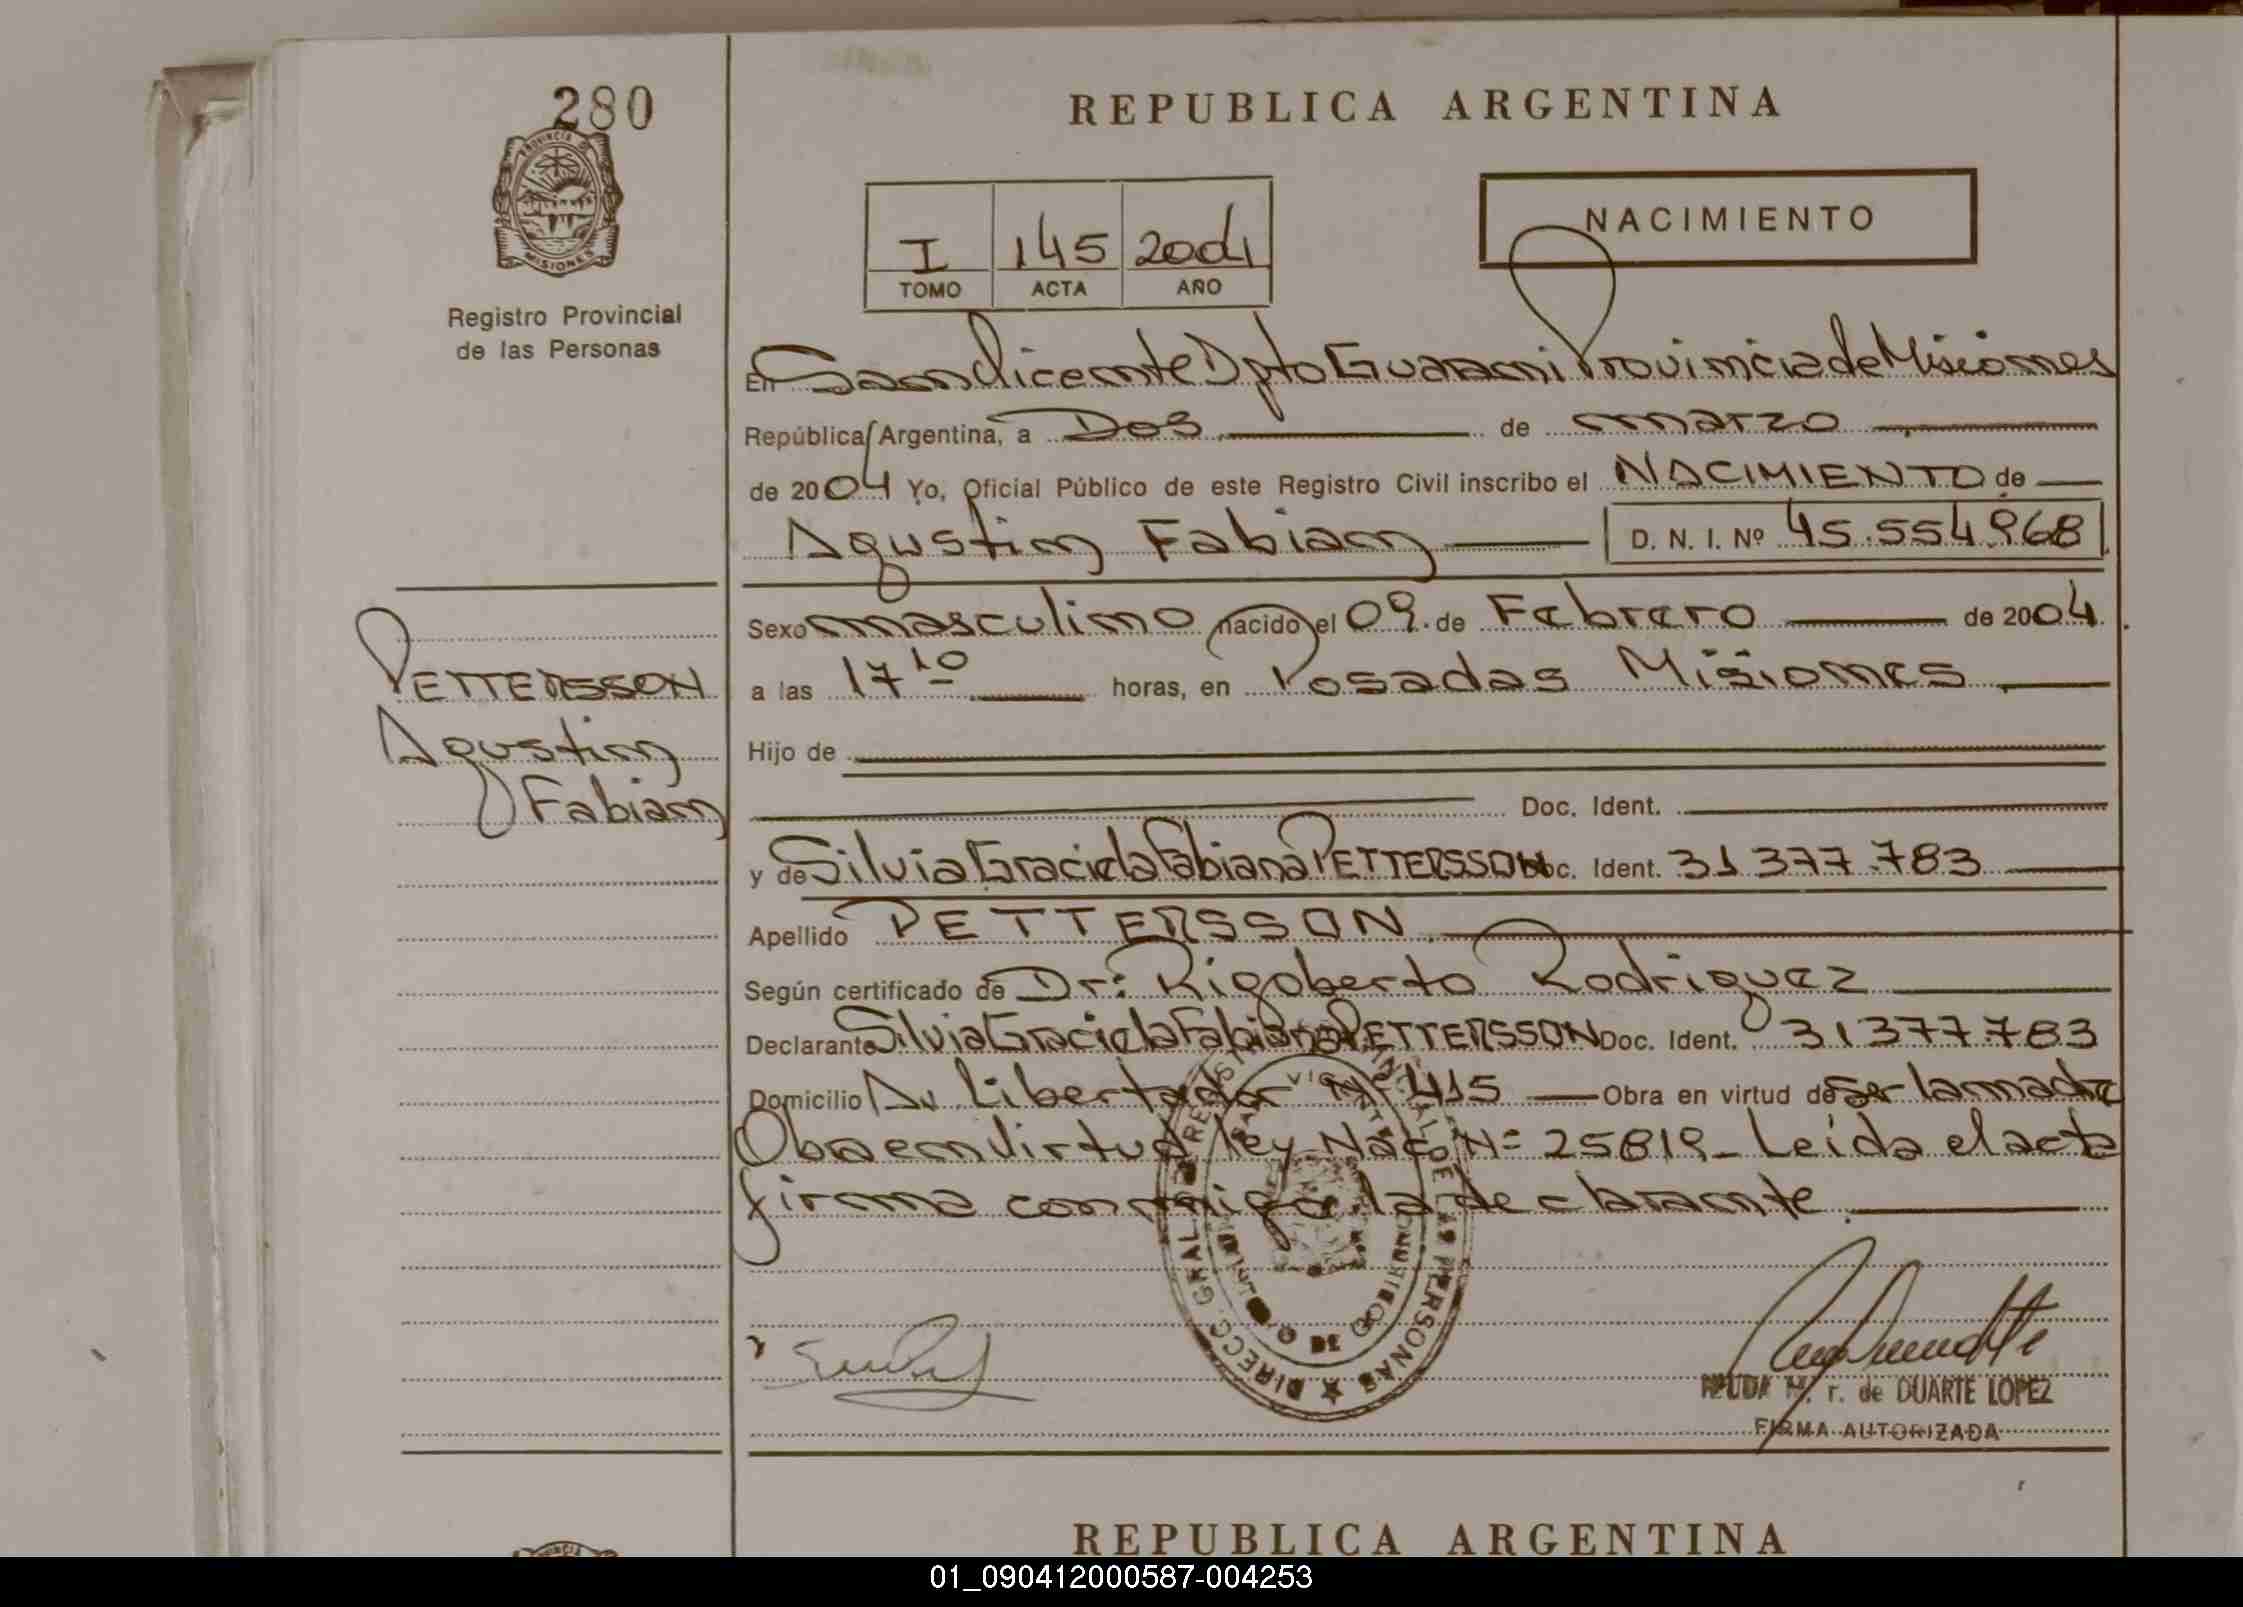 280
PROVINCIA DE
MISIONES
Registro Provincial
de las Personas
REPUBLICA ARGENTINA
I 145 2004
TOMO ACTA AÑO
NACIMIENTO
En San Vicente Dpto Guarani Provincia de Misiones
República Argentina, a Dos de marzo
de 2004 Yo, Oficial Público de este Registro Civil inscribo el NACIMIENTO de
Agustin Fabian D. N. I. Nº 45.554.968
Sexo masculino nacido el 09 de Febrero de 2004
PETTERSSON
Agustin
Fabian
a las 17 10 horas, en Posadas Misiones
Hijo de
Doc. Ident.
y de Silvia Graciela Fabiana PETTERSSON Doc. Ident. 31 377.783
Apellido PETTERSSON
Según certificado de Dr: Rigoberto Rodriguez
Declarante Silvia Graciela Fabiana PETTERSSON Doc. Ident. 31377.783
Domicilio Av Libertador Nº 415 Obra en virtud de ser la madre
Obra en virtud ley Nac. Nº 25819 - Leída el acta
firma conmigo la declarante
DIRECC. GRAL. DE LAS PERSONAS
M. r. de DUARTE LOPEZ
FIRMA AUTORIZADA
REPUBLICA ARGENTINA
01_090412000587-004253